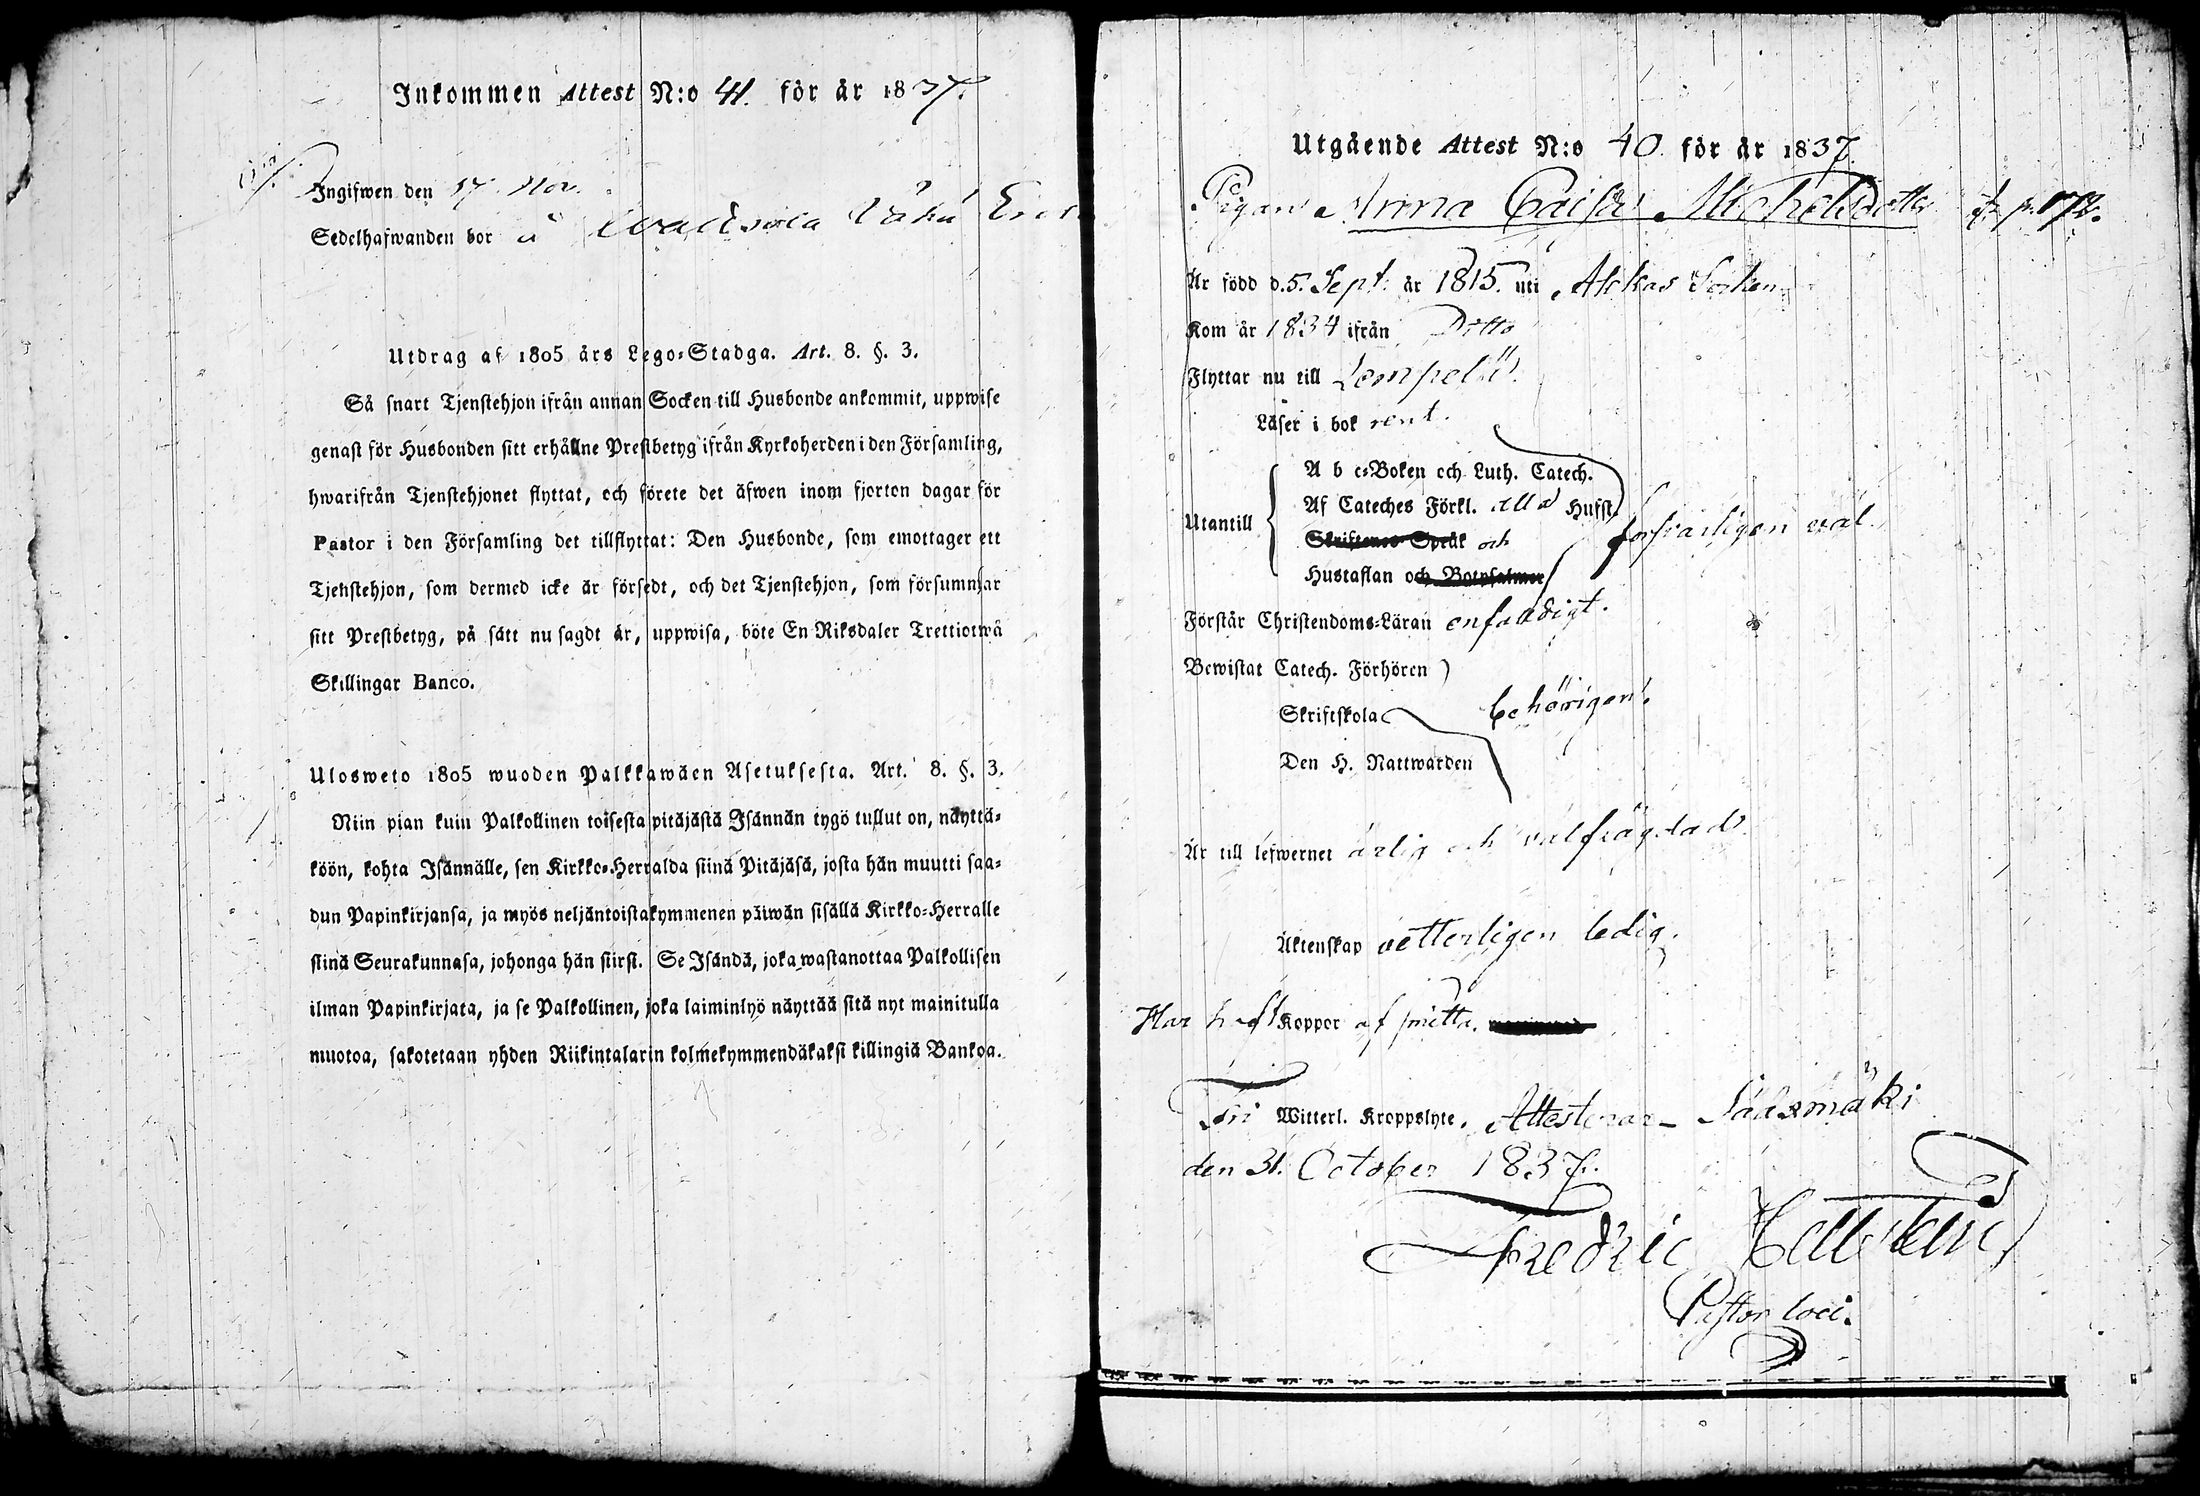 Inkommen Attest N:o 41. för år 1837.
Ingifwen den 17 Nov.
Sedelhafwanden bor å
Utdrag af 1805 års Lego-Stadga. Art. 8. §. 3.
Så snart Tjenstehjon ifrån annan Socken till Husbonde ankommit, uppwise
genast för Husbonden sitt erhållne Prestbetyg ifrån Kyrkoherden i den Församling,
hwarifrån Tjenstehjonet flyttat, och förete det äfwen inom fjorton dagar för
Pastor i den Församling det tillflyttat: Den Husbonde, som emottager ett
Tjenstehjon, som dermed icke är försedt, och det Tjenstehjon, som försummar
sitt Prestbetyg, på sätt nu sagdt är, uppwisa, böte En Riksdaler Trettiotwå
Skillingar Banco.
Ulosweto 1805 wuoden Palkkawäen Asetuksesta. Art. 8. §. 3.
Niin pian kuin Palkollinen toisesta pitäjästä Isännän tygö tullut on, näyttä-
köön, kohta Isännälle, sen Kirkko-Herralda siinä Pitäjäsä, josta hän muutti saa-
dun Papinkirjansa, ja myös neljäntoistakymmenen päiwän sisällä Kirkko-Herralle
siinä Seurakunnasa, johonga hän siirsi. Se Isändä, joka wastanottaa Palkollisen
ilman Papinkirjata, ja se Palkollinen, joka laiminlyö näyttää sitä nyt mainitulla
muotoa, sakotetaan yhden Riikintalarin kolmekymmendäkaksi killingiä Bankoa.
Utgående Attest N:o 40 för år 1837
Pigan Anna Caisa Michelsdotter
Är född d. 5. Sept. år 1815. uti Akkas Socken
Kom år 1834 ifrån Ditto
Flyttar nu till Lempelä
Läser i bok rent.
A b c-Boken och Luth. Catech.
Af Cateches Förkl. alla Hufst.
Utantill
Skriftenes Språk och
försvarligen väl.
Hustaflan och Botpsalmer
Förstår Christendoms-Läran enfaldigt.
Bewistat Catech. Förhören
Skriftskola
behörigen.
Den H. Nattwarden
Är till lefwernet ärlig och välfrägdad
Äktenskap vetterligen ledig.
Har haft Koppor af Witterl. Kroppslyte. Attesterar Sääxmäki
den 31. October 1837.
Fredric
Pastor loci.